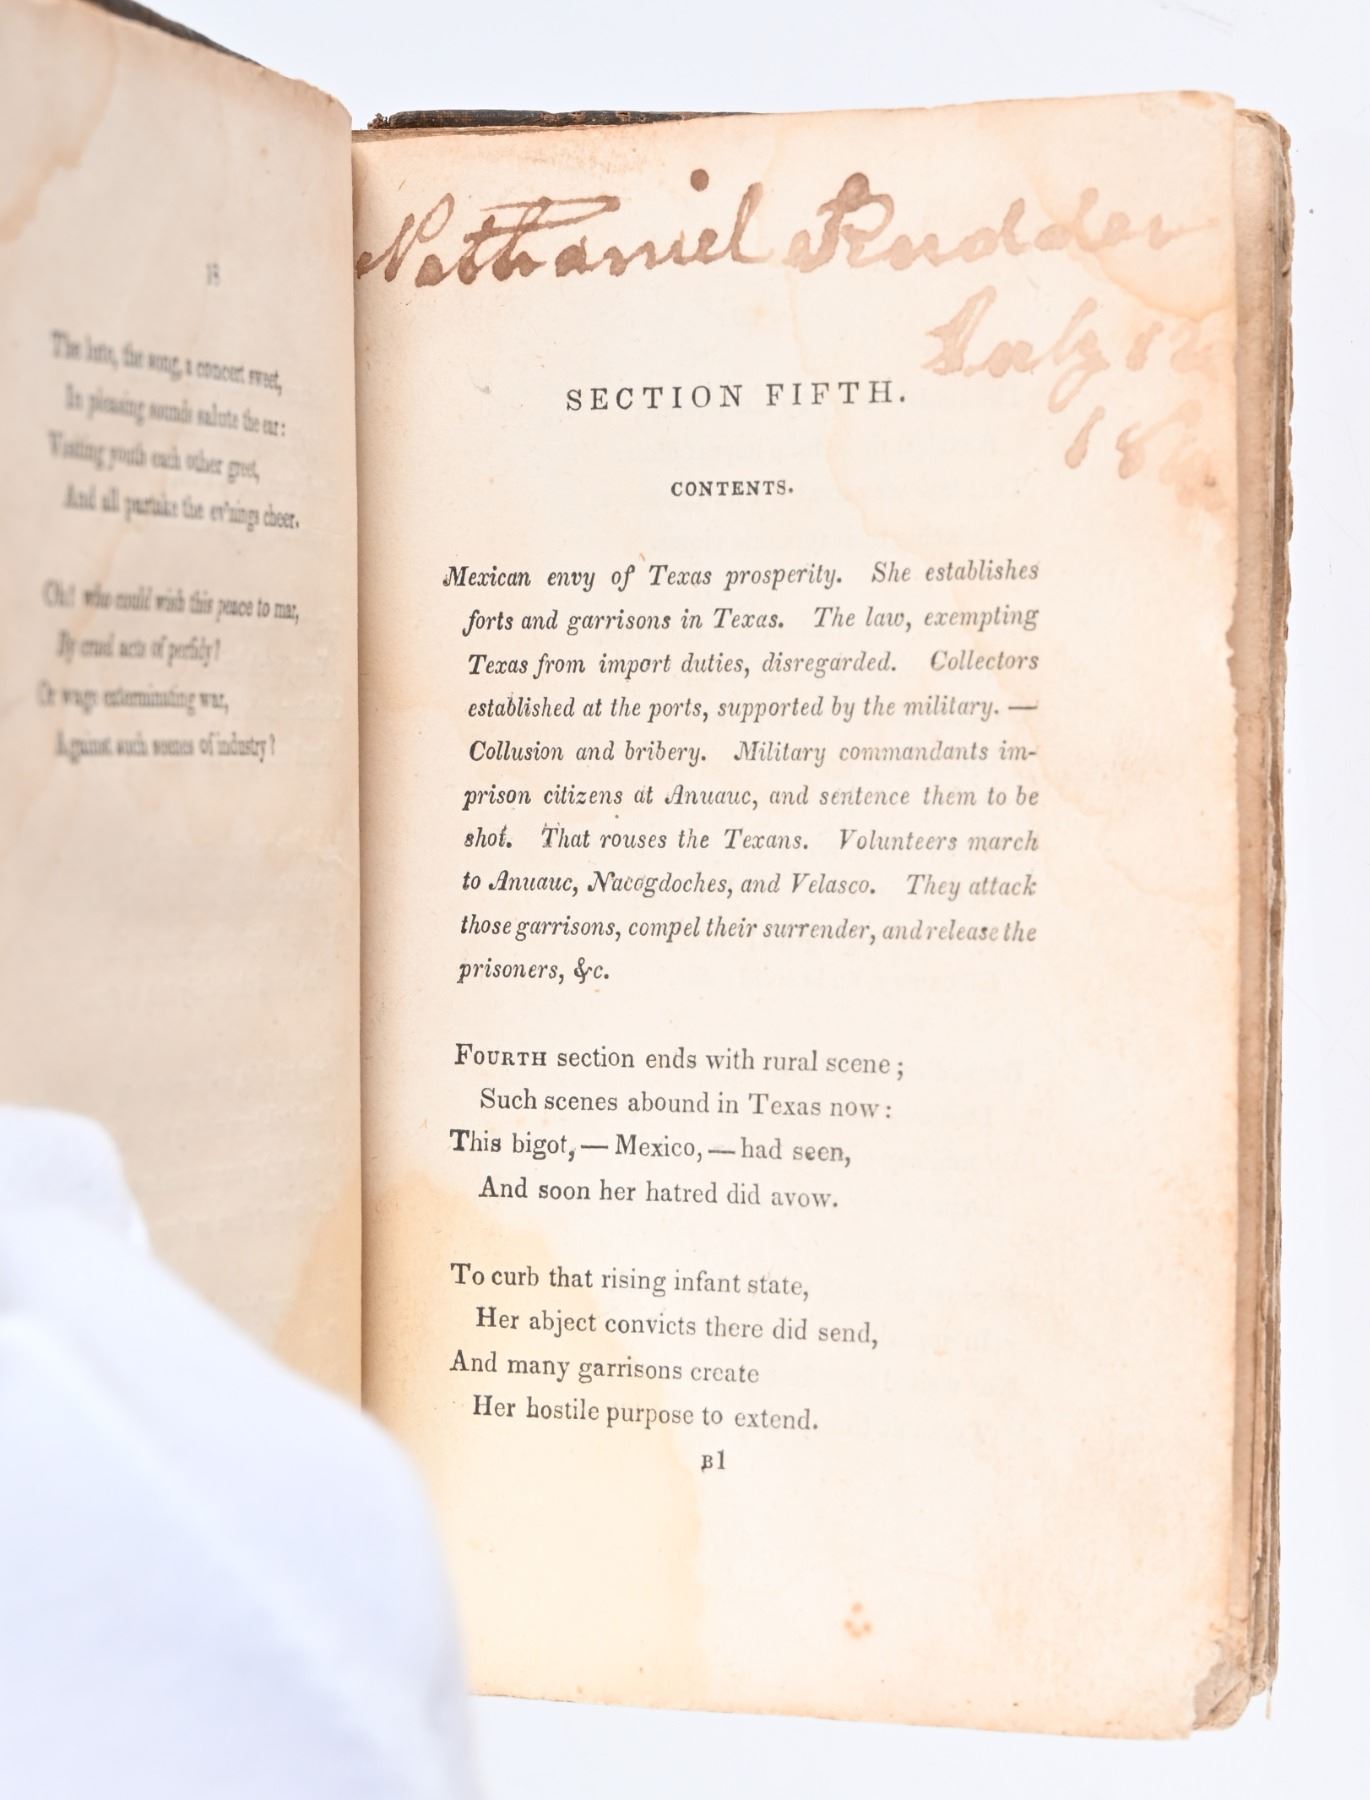 18
The lute, the song, a concert sweet,
In pleasing sounds salute the ear:
Visiting youth each other greet,
And all partake the ev'nings cheer.
Oh! who could wish this peace to mar,
By cruel acts of perfidy?
Or wage exterminating war,
Against such scenes of industry?
Nathaniel Rudder
July 12
18
SECTION FIFTH.
CONTENTS.
Mexican envy of Texas prosperity. She establishes
forts and garrisons in Texas. The law, exempting
Texas from import duties, disregarded. Collectors
established at the ports, supported by the military. —
Collusion and bribery. Military commandants im-
prison citizens at Anuauc, and sentence them to be
shot. That rouses the Texans. Volunteers march
to Anuauc, Nacogdoches, and Velasco. They attack
those garrisons, compel their surrender, and release the
prisoners, &c.
FOURTH section ends with rural scene;
Such scenes abound in Texas now:
This bigot, — Mexico, — had seen,
And soon her hatred did avow.
To curb that rising infant state,
Her abject convicts there did send,
And many garrisons create
Her hostile purpose to extend.
B1